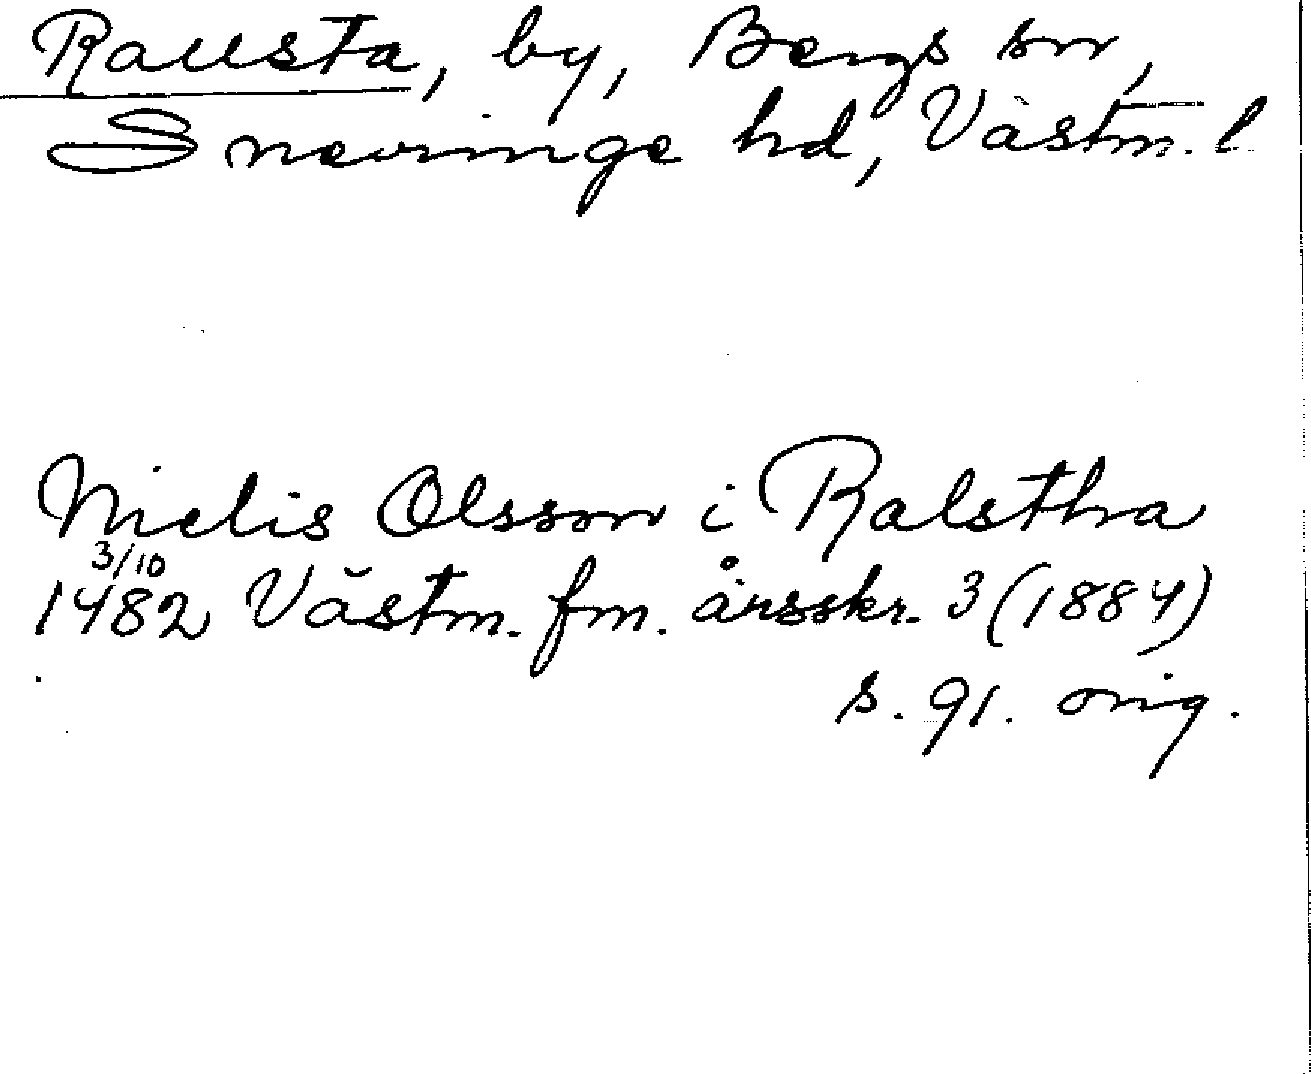 Rallsta, by, Bergs sn,
Snevringe hd, Västm. l
Nielis Olsson i Ralstha
3/10
1482 Västm. fm. årsskr. 3 (1884)
s. 91. orig.